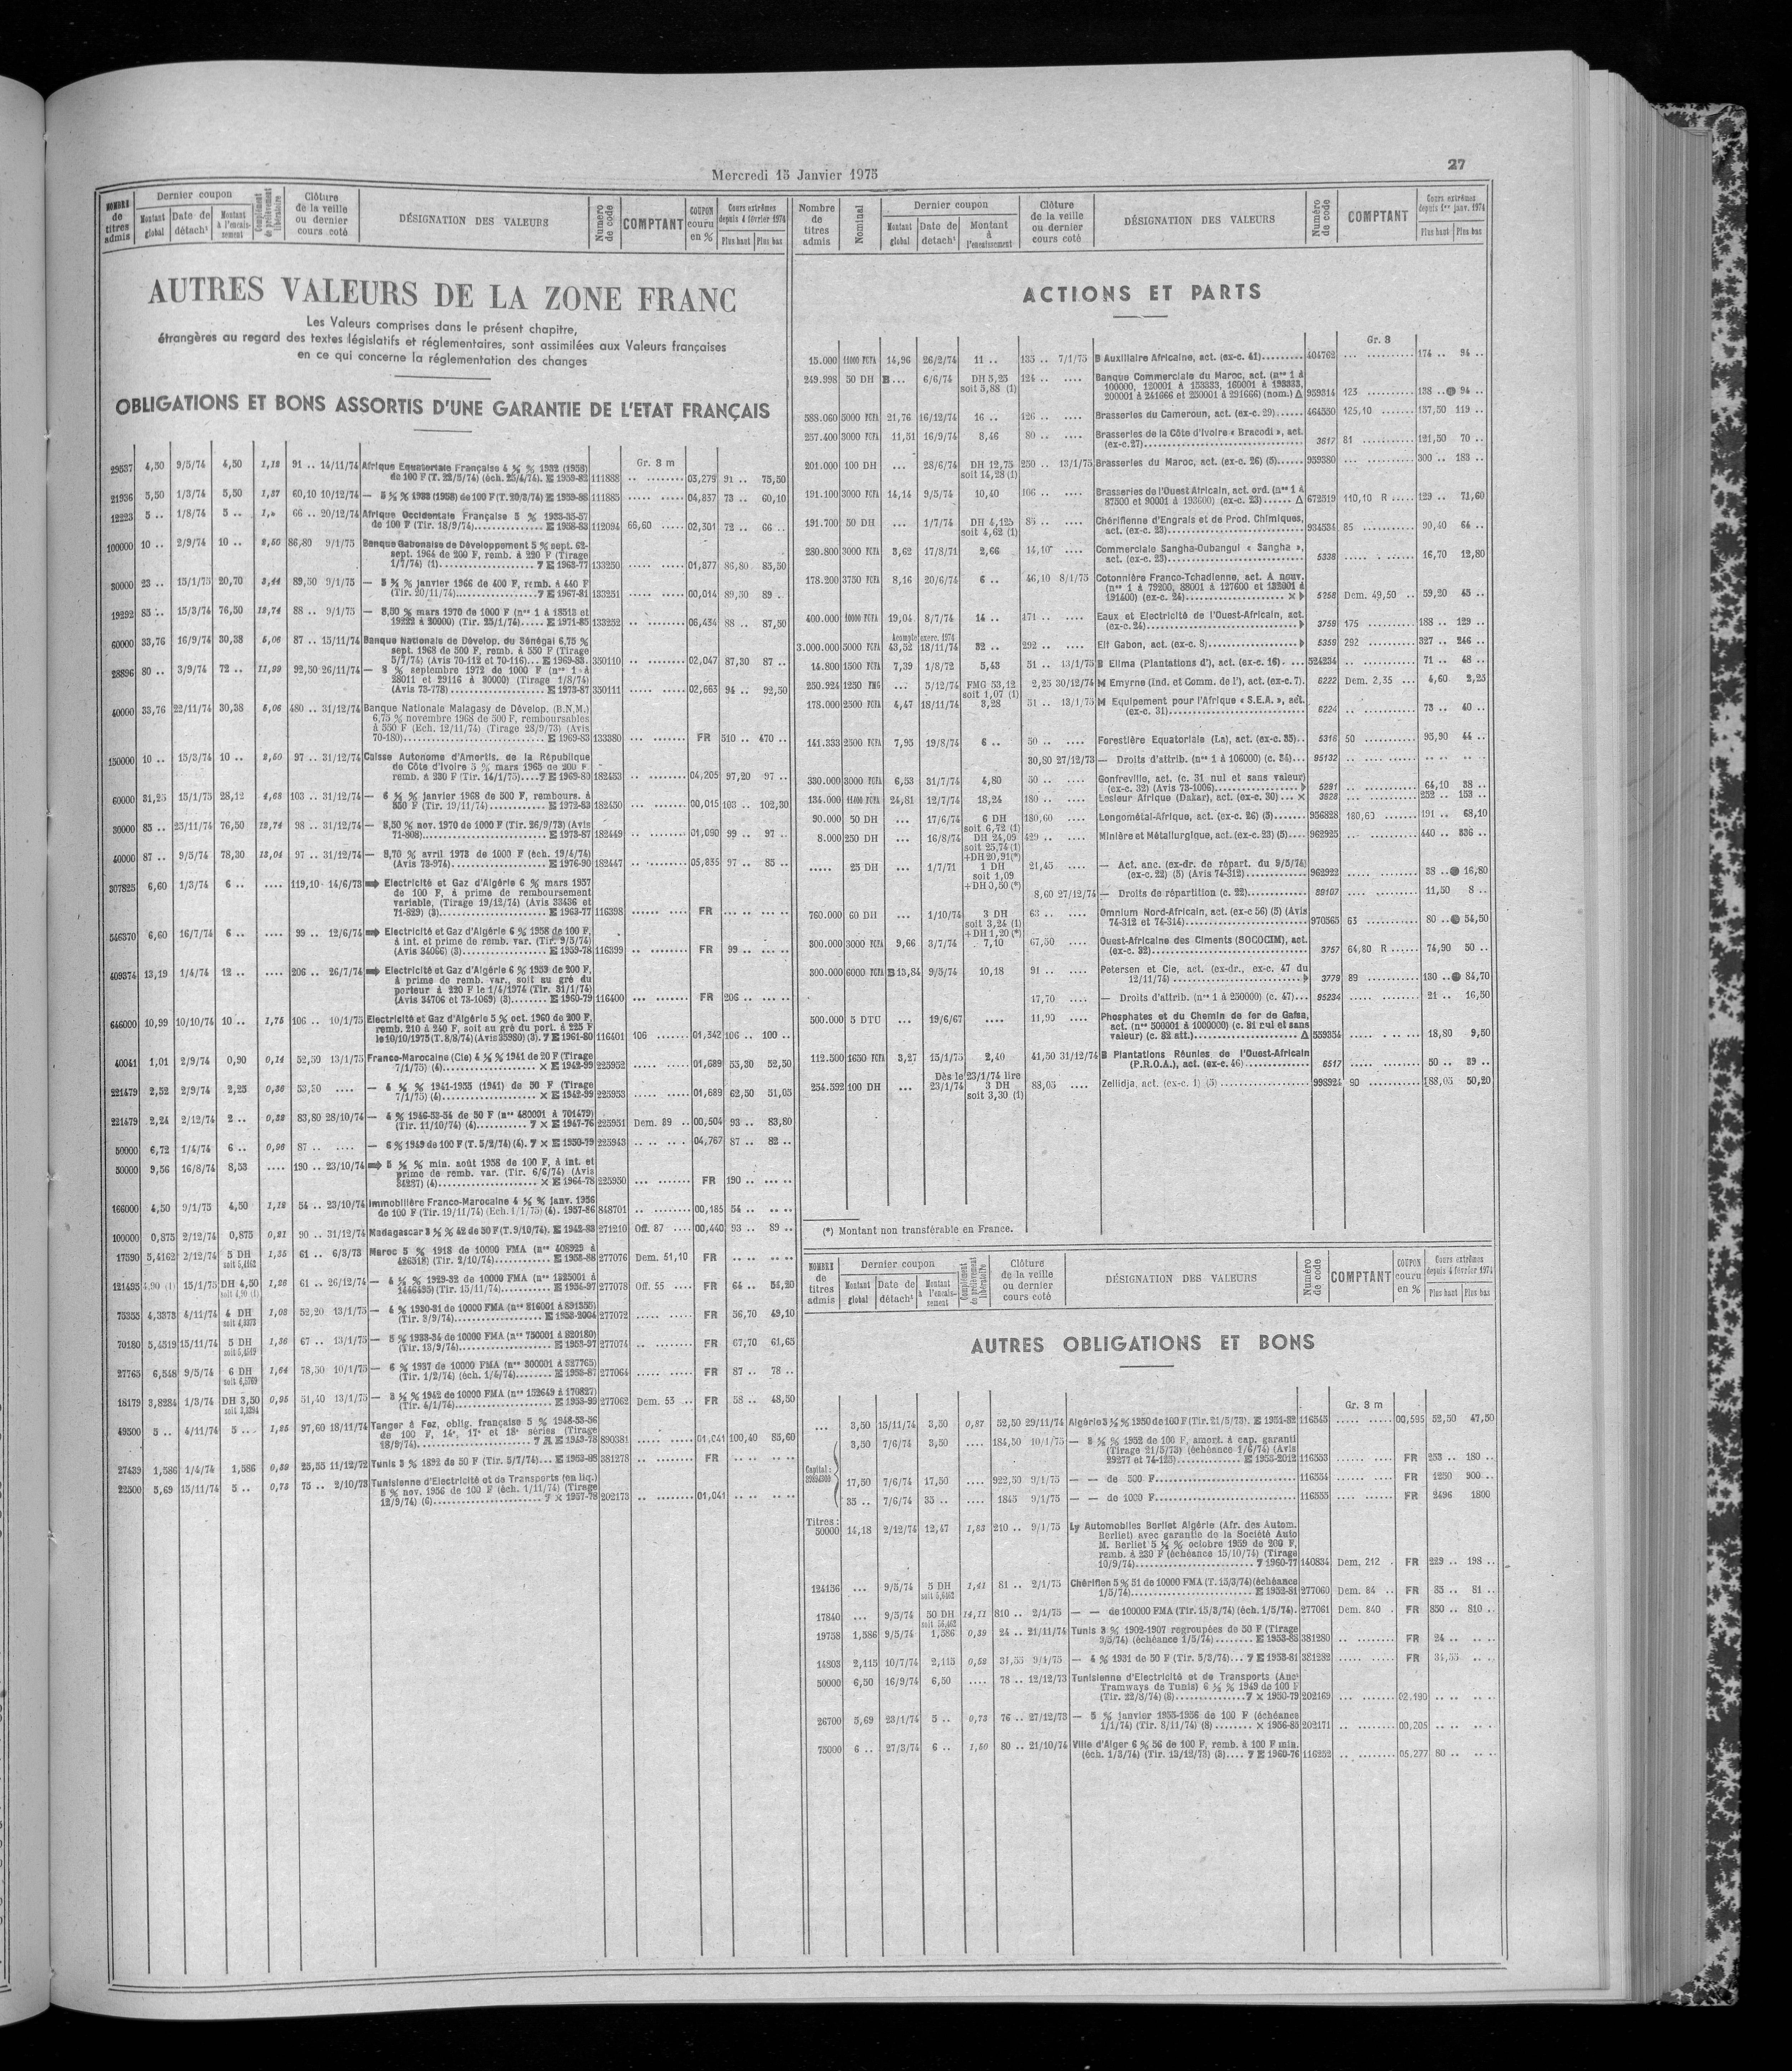 27
Mercredi 15 Janvier 1975
NOMBRE de titres admis | Dernier coupon | Montant global | Date de détach¹ | Montant à l'encaissement | Complément de prélèvement libératoire | Clôture de la veille ou dernier cours coté | DÉSIGNATION DES VALEURS | Numéro de code | COMPTANT | COUPON couru en % | Cours extrêmes depuis 4 février 1974 | Plus haut | Plus bas
AUTRES VALEURS DE LA ZONE FRANC
Les Valeurs comprises dans le présent chapitre,
étrangères au regard des textes législatifs et réglementaires, sont assimilées aux Valeurs françaises
en ce qui concerne la réglementation des changes
OBLIGATIONS ET BONS ASSORTIS D'UNE GARANTIE DE L'ETAT FRANÇAIS
Gr. 3 m
29537 4,50 9/5/74 4,50 1,12 91 .. 14/11/74 Afrique Equatoriale Française 4 ½ % 1932 (1958)
de 100 F (T. 22/5/74) (éch. 25/4/74). E 1959-82 111888 03,279 91 .. 75,50
21936 5,50 1/3/74 5,50 1,37 60,10 10/12/74 — 5 ½ % 1933 (1958) de 100 F (T. 20/3/74) E 1959-88 111885 04,837 73 .. 60,10
12223 5 .. 1/8/74 5 .. 66 .. 20/12/74 Afrique Occidentale Française 5 % 1933-35-57
de 100 F (Tir. 18/9/74) E 1958-83 112094 66,60 02,301 72 .. 66 ..
100000 10 .. 2/9/74 10 .. 2,50 86,80 9/1/75 Banque Gabonaise de Développement 5 % sept. 62-
sept. 1964 de 200 F, remb. à 220 F (Tirage
1/7/74) (1) 7 E 1963-77 133250 01,877 86,80 85,50
30000 23 .. 15/1/75 20,70 3,44 89,50 9/1/75 — 5 ¾ % janvier 1966 de 400 F, remb. à 440 F
(Tir. 20/11/74) 7 E 1967-81 133251 00,014 89,50 89 ..
19292 85 .. 15/3/74 76,50 12,74 88 .. 9/1/75 — 8,50 % mars 1970 de 1000 F (nᵒˢ 1 à 18513 et
19222 à 20000) (Tir. 25/1/74) E 1971-85 133252 06,434 88 .. 87,50
60000 33,76 16/9/74 30,38 5,06 87 .. 15/11/74 Banque Nationale de Dévelop. du Sénégal 6,75 %
sept. 1968 de 500 F, remb. à 550 F (Tirage
5/7/74) (Avis 70-112 et 70-116) E 1969-83 350110 02,047 87,30 87 ..
28896 80 .. 3/9/74 72 .. 11,99 92,50 26/11/74 — 8 % septembre 1972 de 1000 F (nᵒˢ 1 à
28011 et 29116 à 30000) (Tirage 1/8/74)
(Avis 73-778) E 1973-87 350111 02,663 94 .. 92,50
40000 33,76 22/11/74 30,38 5,06 480 .. 31/12/74 Banque Nationale Malagasy de Dévelop. (B.N.M.)
6,75 % novembre 1968 de 500 F, remboursables
à 550 F (Ech. 12/11/74) (Tirage 28/9/73) (Avis
70-180) E 1969-83 133380 FR 510 .. 470 ..
150000 10 .. 15/3/74 10 .. 2,50 97 .. 31/12/74 Caisse Autonome d'Amortis. de la République
de Côte d'Ivoire 5 % mars 1965 de 200 F,
remb. à 230 F (Tir. 14/1/75) 7 E 1969-80 182453 04,205 97,20 97 ..
60000 31,25 15/1/75 28,12 4,68 103 .. 31/12/74 — 6 ¼ % janvier 1968 de 500 F, rembours. à
550 F (Tir. 19/11/74) E 1972-83 182450 00,015 103 .. 102,30
30000 85 .. 25/11/74 76,50 12,74 98 .. 31/12/74 — 8,50 % nov. 1970 de 1000 F (Tir. 26/9/73) (Avis
71-808) E 1973-87 182449 01,090 99 .. 97 ..
40000 87 .. 9/5/74 78,30 13,04 97 .. 31/12/74 — 8,70 % avril 1973 de 1000 F (éch. 19/4/74)
(Avis 73-974) E 1976-90 182447 05,835 97 .. 85 ..
307825 6,60 1/3/74 6 .. .... 119,10 14/6/73 ➡ Electricité et Gaz d'Algérie 6 % mars 1957
de 100 F, à prime de remboursement
variable, (Tirage 19/12/74) (Avis 33436 et
71-829) (3) E 1963-77 116398 FR
546370 6,60 16/7/74 6 .. .... 99 .. 12/6/74 ➡ Electricité et Gaz d'Algérie 6 % 1958 de 100 F,
à int. et prime de remb. var. (Tir. 9/5/74)
(Avis 34066) (3) E 1959-78 116399 FR 99 ..
409374 13,19 1/4/74 12 .. .... 206 .. 26/7/74 ➡ Electricité et Gaz d'Algérie 6 % 1959 de 200 F,
à prime de remb. var., soit au gré du
porteur à 220 F le 1/4/1974 (Tir. 31/1/74)
(Avis 34706 et 73-1069) (3) E 1960-79 116400 FR 206 ..
646000 10,99 10/10/74 10 .. 1,75 106 .. 10/1/75 Electricité et Gaz d'Algérie 5 % oct. 1960 de 200 F,
remb. 210 à 240 F, soit au gré du port. à 225 F
le 10/10/1975 (T. 8/8/74) (Avis 35980) (3). 7 E 1961-80 116401 106 01,342 106 .. 100 ..
40041 1,01 2/9/74 0,90 0,14 52,50 13/1/75 Franco-Marocaine (Cie) 4 ½ % 1941 de 20 F (Tirage
7/1/75) (4) × E 1942-99 225952 01,689 53,30 52,50
221479 2,52 2/9/74 2,25 0,36 53,30 .... — 4 ½ % 1941-1955 (1941) de 50 F (Tirage
7/1/75) (4) × E 1942-99 225953 01,689 62,50 51,05
221479 2,24 2/12/74 2 .. 0,32 83,80 28/10/74 — 4 % 1946-53-54 de 50 F (nᵒˢ 480001 à 701479)
(Tir. 11/10/74) (4) 7 × E 1947-76 225951 Dem. 89 00,504 93 .. 83,80
50000 6,72 1/4/74 6 .. 0,96 87 .. .... — 6 % 1949 de 100 F (T. 5/2/74) (4). 7 × E 1950-79 225943 04,767 87 .. 82 ..
50000 9,56 16/8/74 8,53 .... 190 .. 23/10/74 ➡ 5 ½ % min. août 1958 de 100 F, à int. et
prime de remb. var. (Tir. 6/6/74) (Avis
34237) (4) × E 1964-78 225950 FR 190 ..
166000 4,50 9/1/75 4,50 1,12 54 .. 23/10/74 Immobilière Franco-Marocaine 4 ½ % janv. 1956
de 100 F (Tir. 19/11/74) (Ech. 1/1/75) (4). 1957-86 848701 00,185 54 ..
100000 0,875 2/12/74 0,875 0,21 90 .. 31/12/74 Madagascar 3 ½ % 42 de 50 F (T. 9/10/74). E 1942-83 271210 Off. 87 00,440 93 .. 89 ..
17590 5,4162 2/12/74 5 DH soit 5,4162 1,35 61 .. 6/3/73 Maroc 5 % 1918 de 10000 FMA (nᵒˢ 408929 à
426518) (Tir. 2/10/74) E 1953-88 277076 Dem. 51,10 FR
121495 4,90 (1) 15/1/75 DH 4,50 soit 4,90 (1) 1,26 61 .. 26/12/74 — 4 ½ % 1929-32 de 10000 FMA (nᵒˢ 1325001 à
1446495) (Tir. 15/11/74) E 1954-97 277078 Off. 55 FR 64 .. 54,20
75355 4,3373 4/11/74 4 DH soit 4,3373 1,08 52,20 13/1/75 — 4 % 1930-31 de 10000 FMA (nᵒˢ 816001 à 891355)
(Tir. 3/9/74) E 1953-2004 277072 FR 56,70 49,10
70180 5,4519 15/11/74 5 DH soit 5,4519 1,36 67 .. 13/1/75 — 5 % 1933-34 de 10000 FMA (nᵒˢ 750001 à 820180)
(Tir. 13/9/74) E 1953-97 277074 FR 67,70 61,65
27765 6,548 9/5/74 6 DH soit 6,5769 1,64 78,50 10/1/75 — 6 % 1937 de 10000 FMA (nᵒˢ 300001 à 327765)
(Tir. 1/2/74) (éch. 1/4/74) E 1953-87 277064 FR 87 .. 78 ..
18179 3,8284 1/3/74 DH 3,50 0,95 51,40 13/1/75 — 3 ½ % 1942 de 10000 FMA (nᵒˢ 152649 à 170827)
(Tir. 4/1/74) E 1953-99 277062 Dem. 53 FR 58 .. 48,50
49500 5 .. 4/11/74 5 .. 1,25 97,60 18/11/74 Tanger à Fez, oblig. française 5 % 1948-53-56
de 100 F, 14ᵉ, 17ᵉ et 18ᵉ séries (Tirage
18/9/74) 7 E 1949-78 890381 01,041 100,40 85,60
27439 1,586 1/4/74 1,586 0,39 25,55 11/12/72 Tunis 3 % 1892 de 50 F (Tir. 5/7/74) E 1953-88 381278 FR
22500 5,69 15/11/74 5 .. 0,73 75 .. 2/10/73 Tunisienne d'Electricité et de Transports (en liq.)
5 % nov. 1956 de 100 F (éch. 1/11/74) (Tirage
12/9/74) (6) 7 × 1957-78 202173 01,041
Nombre de titres admis | Nominal | Dernier coupon | Montant global | Date de détach¹ | Montant à l'encaissement | Clôture de la veille ou dernier cours coté | DÉSIGNATION DES VALEURS | Numéro de code | COMPTANT | Cours extrêmes depuis 1ᵉʳ janv. 1974 | Plus haut | Plus bas
ACTIONS ET PARTS
Gr. 3
15.000 11000 FCFA 14,96 26/2/74 11 .. 135 .. 7/1/75 B Auxiliaire Africaine, act. (ex-c. 41) 404762 174 .. 94 ..
249.998 50 DH B... 6/6/74 DH 5,25 soit 5,88 (1) 124 .. .... Banque Commerciale du Maroc, act. (nᵒˢ 1 à
100000, 120001 à 153333, 160001 à 193333,
200001 à 241666 et 250001 à 291666) (nom.) Δ 959314 123 138 .. 94 ..
588.060 5000 FCFA 21,76 16/12/74 16 .. 126 .. .... Brasseries du Cameroun, act. (ex-c. 29) 464550 125,10 157,50 119 ..
257.400 3000 FCFA 11,51 16/9/74 8,46 80 .. .... Brasseries de la Côte d'Ivoire « Bracodi », act.
(ex-c.27) 3617 81 121,50 70 ..
201.000 100 DH ... 28/6/74 DH 12,75 soit 14,28 (1) 250 .. 13/1/75 Brasseries du Maroc, act. (ex-c. 26) (5) 959380 300 .. 183 ..
191.100 3000 FCFA 14,14 9/5/74 10,40 106 .. .... Brasseries de l'Ouest Africain, act. ord. (nᵒˢ 1 à
87500 et 90001 à 193600) (ex-c. 23) Δ 672519 110,10 R 129 .. 71,60
191.700 50 DH ... 1/7/74 DH 4,125 soit 4,62 (1) 85 .. .... Chérifienne d'Engrais et de Prod. Chimiques,
act. (ex-c. 23) 934534 85 90,40 64 ..
280.800 3000 FCFA 3,62 17/8/71 2,66 14,10 .... Commerciale Sangha-Oubangui « Sangha »,
act. (ex-c. 23) 5338 16,70 12,80
178.200 3750 FCFA 8,16 20/6/74 6 .. 46,10 8/1/75 Cotonnière Franco-Tchadienne, act. A nouv.
(nᵒˢ 1 à 79200, 88001 à 127600 et 132001 à
191400) (ex-c. 24) × 5258 Dem. 49,50 59,20 45 ..
400.000 10000 FCFA 19,04 8/7/74 14 .. 171 .. .... Eaux et Electricité de l'Ouest-Africain, act.
(ex-c. 24) 3759 175 188 .. 129 ..
Acompte exerc. 1974
3.000.000 5000 FCFA 43,52 18/11/74 32 .. 292 .. .... Elf Gabon, act. (ex-c. 8) 5359 292 327 .. 246 ..
14.800 1500 FCFA 7,39 1/8/72 5,43 51 .. 13/1/75 B Elima (Plantations d'), act. (ex-c. 16) 524234 71 .. 48 ..
250.924 1250 FMG ... 5/12/74 FMG 53,12 soit 1,07 (1) 2,25 30/12/74 M Emyrne (Ind. et Comm. de l'), act. (ex-c. 7). 6222 Dem. 2,35 4,60 2,25
178.000 2500 FCFA 4,47 18/11/74 3,28 51 .. 13/1/75 M Equipement pour l'Afrique « S.E.A. », act.
(ex-c. 31) 6224 73 .. 40 ..
141.333 2500 FCFA 7,95 19/8/74 6 .. 50 .. .... Forestière Equatoriale (La), act. (ex-c. 35) 5316 50 95,90 44 ..
30,80 27/12/73 — Droits d'attrib. (nᵒˢ 1 à 106000) (c. 34) 95132
330.000 3000 FCFA 6,53 31/7/74 4,80 50 .. .... Gonfreville, act. (c. 31 nul et sans valeur)
(ex-c. 32) (Avis 73-1006) 5291 64,10 38 ..
134.000 11000 FCFA 24,81 12/7/74 18,24 180 .. .... Lesieur Afrique (Dakar), act. (ex-c. 30) × 3828 252 .. 153 ..
90.000 50 DH ... 17/6/74 6 DH soit 6,72 (1) 180,60 .... Longométal-Afrique, act. (ex-c. 26) (5) 956828 180,60 191 .. 68,10
8.000 250 DH ... 16/8/74 DH 24,09 soit 25,74 (1) +DH 20,91(*) 429 .. .... Minière et Métallurgique, act. (ex-c. 23) (5) 962925 440 .. 336 ..
..... 25 DH 1/7/71 1 DH soit 1,09 +DH 0,50 (*) 21,45 .... — Act. anc. (ex-dr. de répart. du 9/5/74)
(ex-c. 22) (5) (Avis 74-312) 962922 38 .. 16,80
8,60 27/12/74 — Droits de répartition (c. 22) 89107 11,50 8 ..
760.000 60 DH ... 1/10/74 3 DH soit 3,24 (1) +DH 1,20 (*) 63 .. .... Omnium Nord-Africain, act. (ex-c 56) (5) (Avis
74-312 et 74-314) 970565 63 80 .. 54,50
300.000 3000 FCFA 9,66 3/7/74 7,10 67,50 .... Ouest-Africaine des Ciments (SOCOCIM), act.
(ex-c. 32) 3757 64,80 R 74,90 50 ..
300.000 6000 FCFA B 13,84 9/5/74 10,18 91 .. .... Petersen et Cie, act. (ex-dr., ex-c. 47 du
12/11/74) 3779 89 130 .. 84,70
17,70 .... — Droits d'attrib. (nᵒˢ 1 à 250000) (c. 47) 95234 21 .. 16,50
500.000 5 DTU ... 19/6/67 .... 11,90 .... Phosphates et du Chemin de fer de Gafsa,
act. (nᵒˢ 500001 à 1000000) (c. 81 nul et sans
valeur) (c. 82 att.) Δ 559354 18,80 9,50
112.500 1650 FCFA 3,27 15/1/75 2,40 41,50 31/12/74 B Plantations Réunies de l'Ouest-Africain
(P.R.O.A.), act. (ex-c. 46) 6517 50 .. 39 ..
Dès le 23/1/74 lire
254.592 100 DH ... 23/1/74 3 DH soit 3,30 (1) 88,05 .... Zellidja, act. (ex-c. 1) (5) 998924 90 188,05 50,20
(*) Montant non transférable en France.
NOMBRE de titres admis | Dernier coupon | Montant global | Date de détach¹ | Montant à l'encaissement | Complément de prélèvement libératoire | Clôture de la veille ou dernier cours coté | DÉSIGNATION DES VALEURS | Numéro de code | COMPTANT | COUPON couru en % | Cours extrêmes depuis 4 février 1974 | Plus haut | Plus bas
AUTRES OBLIGATIONS ET BONS
Gr. 3 m
... 3,50 15/11/74 3,50 0,87 52,50 29/11/74 Algérie 3 ½ % 1950 de 100 F (Tir. 21/5/73). E 1951-82 116545 00,595 52,50 47,50
3,50 7/6/74 3,50 .... 184,50 10/1/75 — 3 ½ % 1952 de 100 F, amort. à cap. garanti
(Tirage 21/5/73) (échéance 1/6/74) (Avis
29277 et 74-123) E 1953-2012 116553 FR 253 .. 180 ..
Capital :
17,50 7/6/74 17,50 .... 922,50 9/1/75 — — de 500 F 116554 FR 1250 900 ..
35 .. 7/6/74 35 .. .... 1845 9/1/75 — — de 1000 F 116555 FR 2496 1800
Titres :
50000 14,18 2/12/74 12,47 1,83 210 .. 9/1/75 Ly Automobiles Berliet Algérie (Afr. des Autom.
Berliet) avec garantie de la Société Auto
M. Berliet 5 ½ % octobre 1959 de 200 F,
remb. à 230 F (échéance 15/10/74) (Tirage
10/9/74) 7 1960-77 140834 Dem. 212 FR 229 .. 198 ..
124156 ... 9/5/74 5 DH soit 5,6462 1,41 81 .. 2/1/75 Chérifien 5 % 51 de 10000 FMA (T. 15/3/74) (échéance
1/5/74) E 1952-81 277060 Dem. 84 FR 85 .. 81 ..
17840 ... 9/5/74 50 DH soit 56,462 14,11 810 .. 2/1/75 — — de 100000 FMA (Tir. 15/3/74) (éch. 1/5/74). 277061 Dem. 840 FR 850 .. 810 ..
19758 1,586 9/5/74 1,586 0,39 24 .. 21/11/74 Tunis 3 % 1902-1907 regroupées de 50 F (Tirage
9/5/74) (échéance 1/5/74) E 1953-88 381280 FR 24 ..
14803 2,115 10/7/74 2,115 0,52 34,55 9/4/75 — 4 % 1931 de 50 F (Tir. 5/3/74) 7 E 1953-81 381282 FR 34,55
50000 6,50 16/9/74 6,50 .... 78 .. 12/12/73 Tunisienne d'Electricité et de Transports (Ancˢ
Tramways de Tunis) 6 ½ % 1949 de 100 F
(Tir. 22/8/74) (8) 7 × 1950-79 202169 02,190
26700 5,69 23/1/74 5 .. 0,73 76 .. 27/12/73 — 5 % janvier 1955-1956 de 100 F (échéance
1/1/74) (Tir. 8/11/74) (8) × 1956-85 202171 00,205
75000 6 .. 27/3/74 6 .. 1,50 80 .. 21/10/74 Ville d'Alger 6 % 56 de 100 F, remb. à 100 F min.
(éch. 1/3/74) (Tir. 13/12/73) (3) 7 E 1960-76 116252 05,277 80 ..